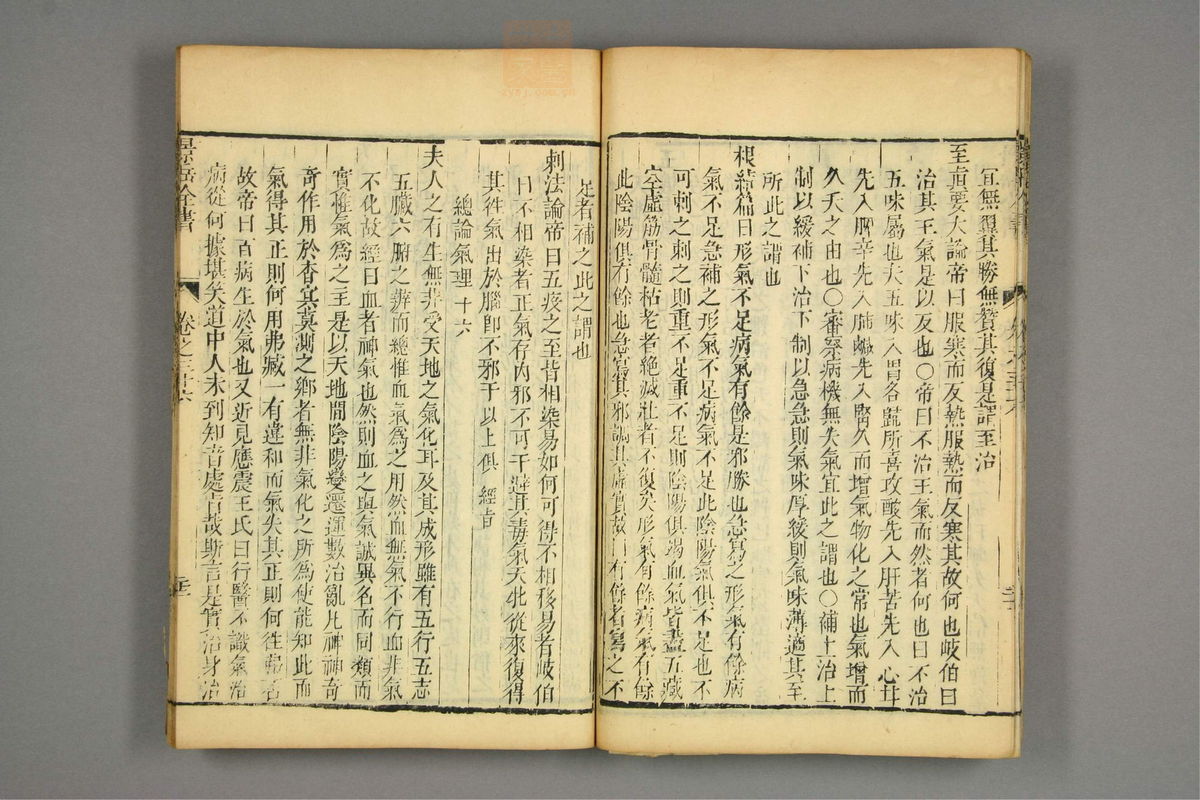 宜無翼其勝無贊其復是謂至治
至眞要大論帝曰服寒而反熱服熱而反寒其故何也岐伯曰
治其王氣是以反也〇帝曰不治王氣而然者何也曰不治
五味屬也夫五味入胃各歸所喜攻酸先入肝苦先入心甘
先入脾辛先入肺鹹先入腎久而增氣物化之常也氣增而
久夭之由也〇審察病機無失氣宜此之謂也〇補上治上
制以緩補下治下制以急急則氣味厚緩則氣味薄適其至
所此之謂也
根結篇曰形氣不足病氣有餘是邪勝也急瀉之形氣有餘病
氣不足急補之形氣不足病氣不足此陰陽氣俱不足也不
可刺之刺之則重不足重不足則陰陽俱竭血氣皆盡五藏
空虛筋骨髓枯老者絕滅壯者不復矣形氣有餘病氣有餘
此陰陽俱有餘也急瀉其邪調其虛實故曰有餘者瀉之不
足者補之此之謂也
刺法論帝曰五疫之至皆相染易如何可得不相移易者岐伯
曰不相染者正氣存內邪不可干避其毒氣天牝從來復得
其往氣出於腦即不邪干以上俱 經旨
總論氣理 十六
夫人之有生無非受天地之氣化耳及其成形雖有五行五志
五臟六腑之辨而總惟血氣爲之用然血無氣不行血非氣
不化故經曰血者神氣也然則血之與氣誠異名而同類而
實惟氣爲之主是以天地間陰陽變遷運數治亂凡神神奇
奇作用於杳冥莫測之鄉者無非氣化之所爲使能知此而
氣得其正則何用弗臧一有違和而氣失其正則何往弗否
故帝曰百病生於氣也又近見應震王氏曰行醫不識氣治
病從何據堪笑道中人未到知音處旨哉斯言是實治身治
景岳全書
卷之三十六